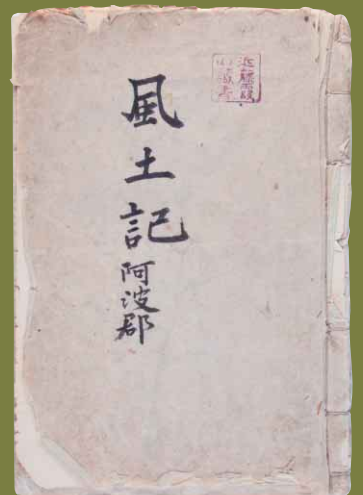 風土記阿波郡